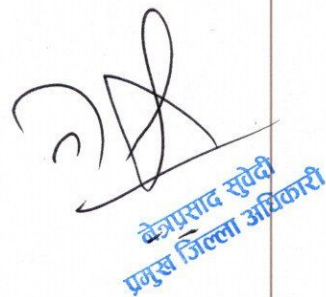 बेत्रप्रसाद सुवेदी
प्रमुख जिल्ला अधिकारी